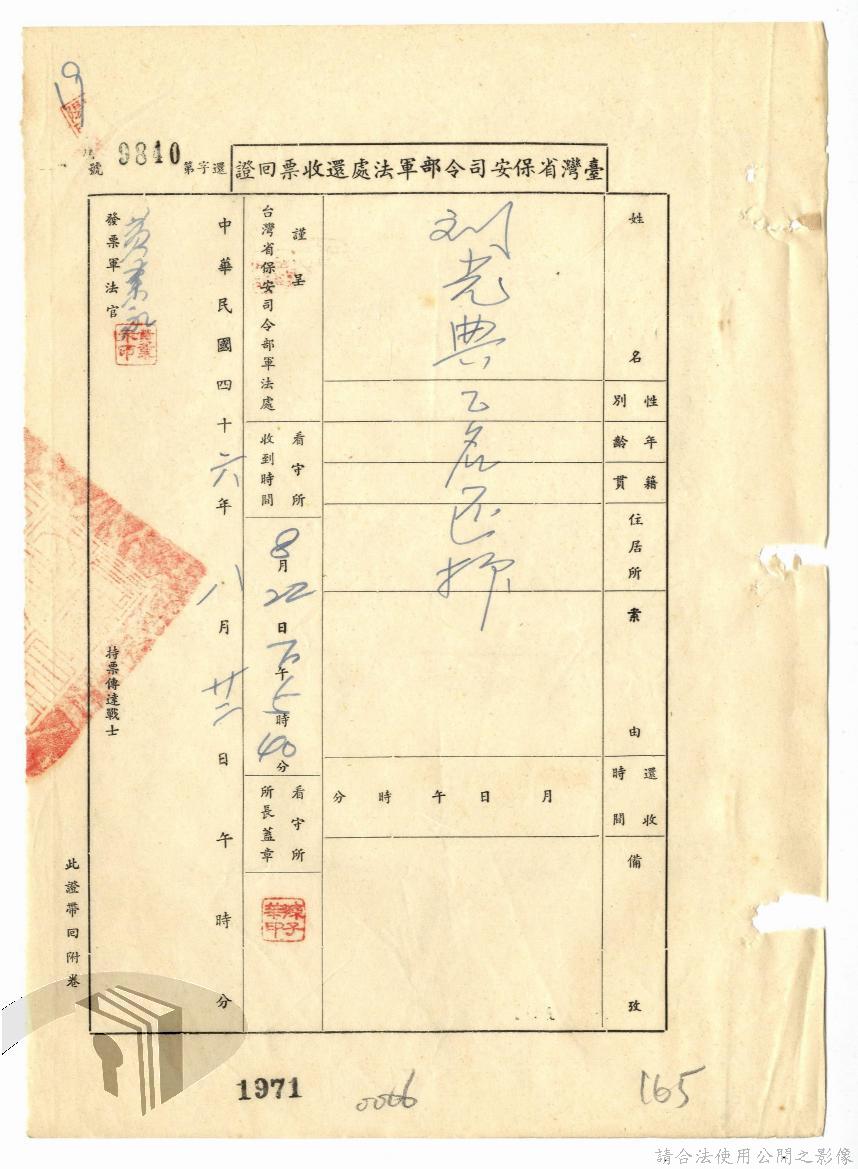 臺灣省保安司令部軍法處還收票回證
還字第9840號
姓名
刘光典乙名还押
性別
年齡
籍貫
住居所
案由
還收時間
月日午時分
備攷
謹呈
台灣省保安司令部軍法處
看守所收到時間
8月22日下午5時40分
看守所所長蓋章
中華民國四十六年八月廿二日午時分
發票軍法官
持票傳達戰士
此證帶回附卷
1971
0006
165
請合法使用公開之影像